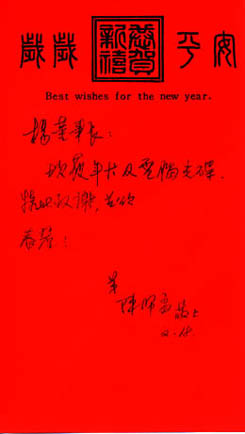 歲歲 恭賀新禧 平安
Best wishes for the new year.
楊董事長：
欣獲年卡及電腦光碟，
特此致謝，並頌
春釐：
弟
陳 敬上
2.18.